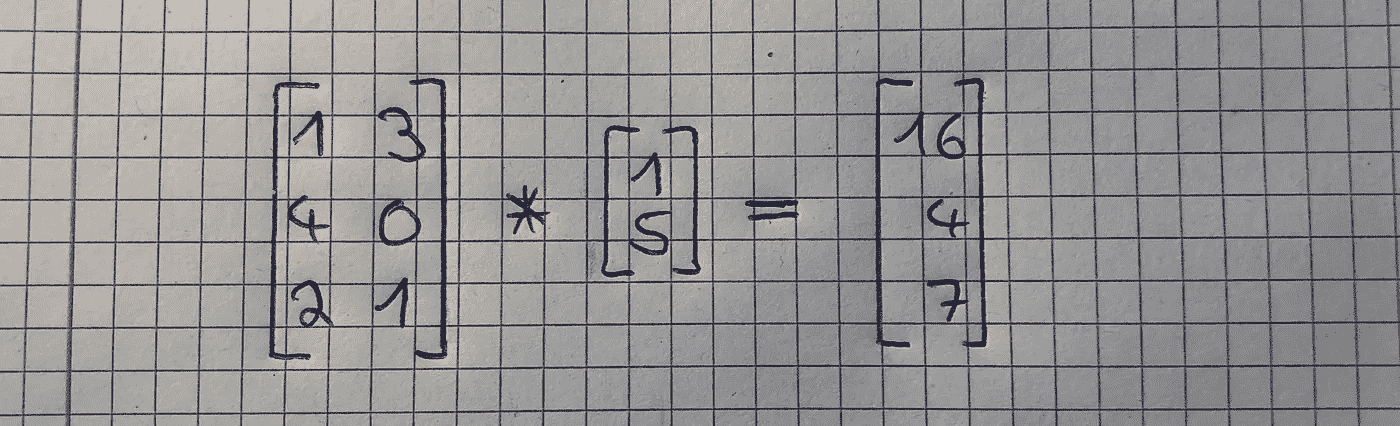 [1 3
4 0
2 1] * [1
5] = [16
4
7]